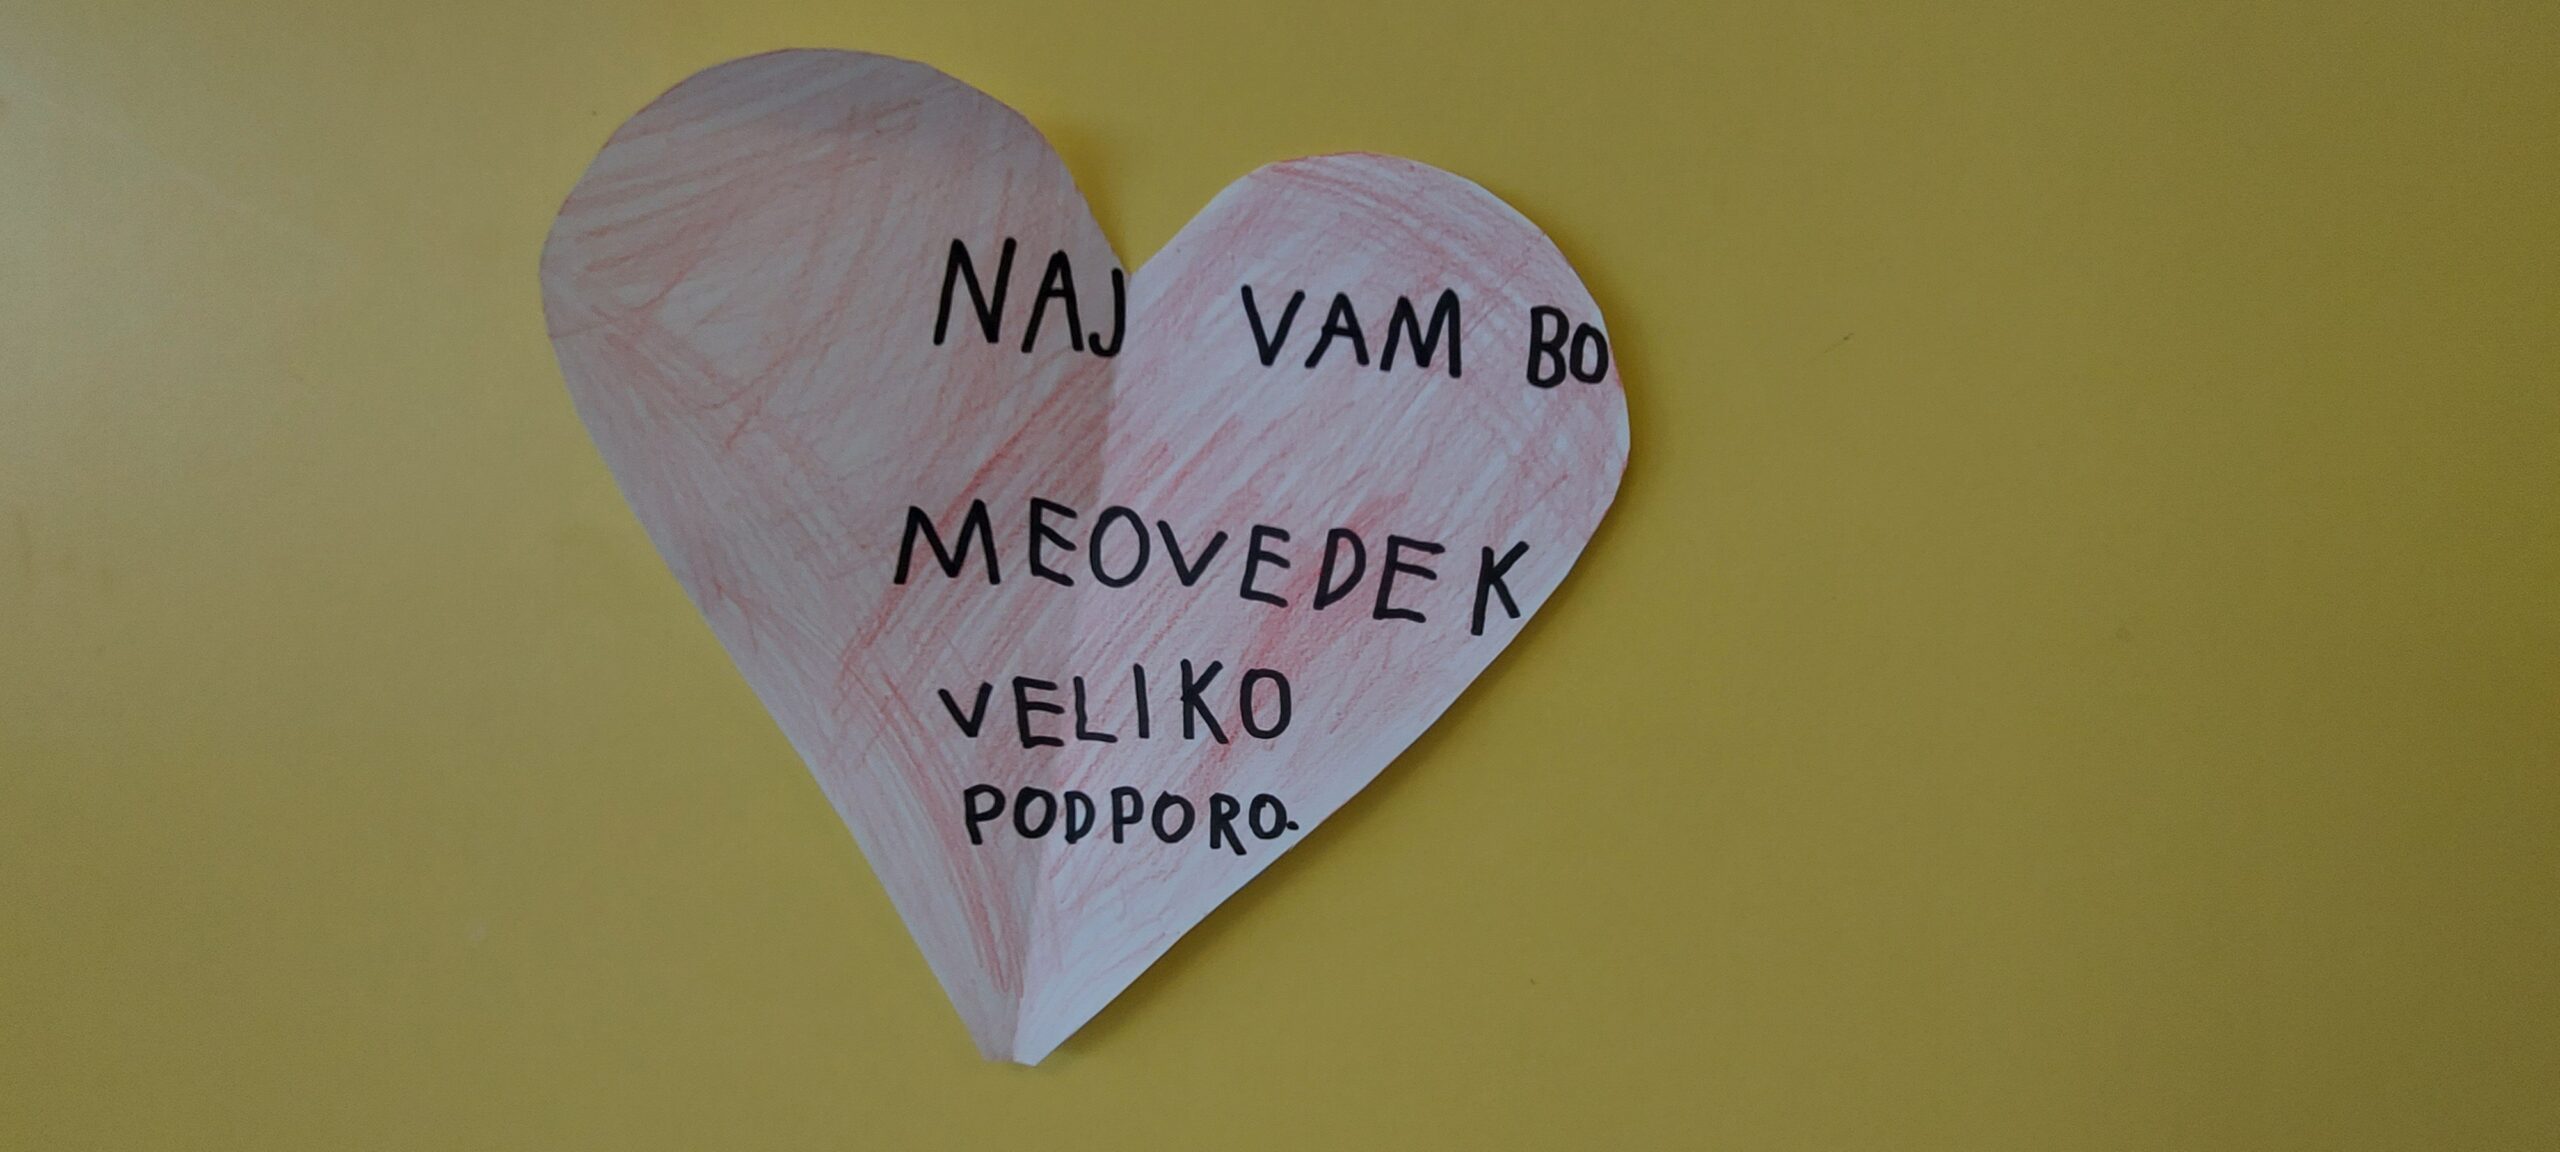 NAJ VAM BO
MEOVEDEK
VELIKO
PODPORO.